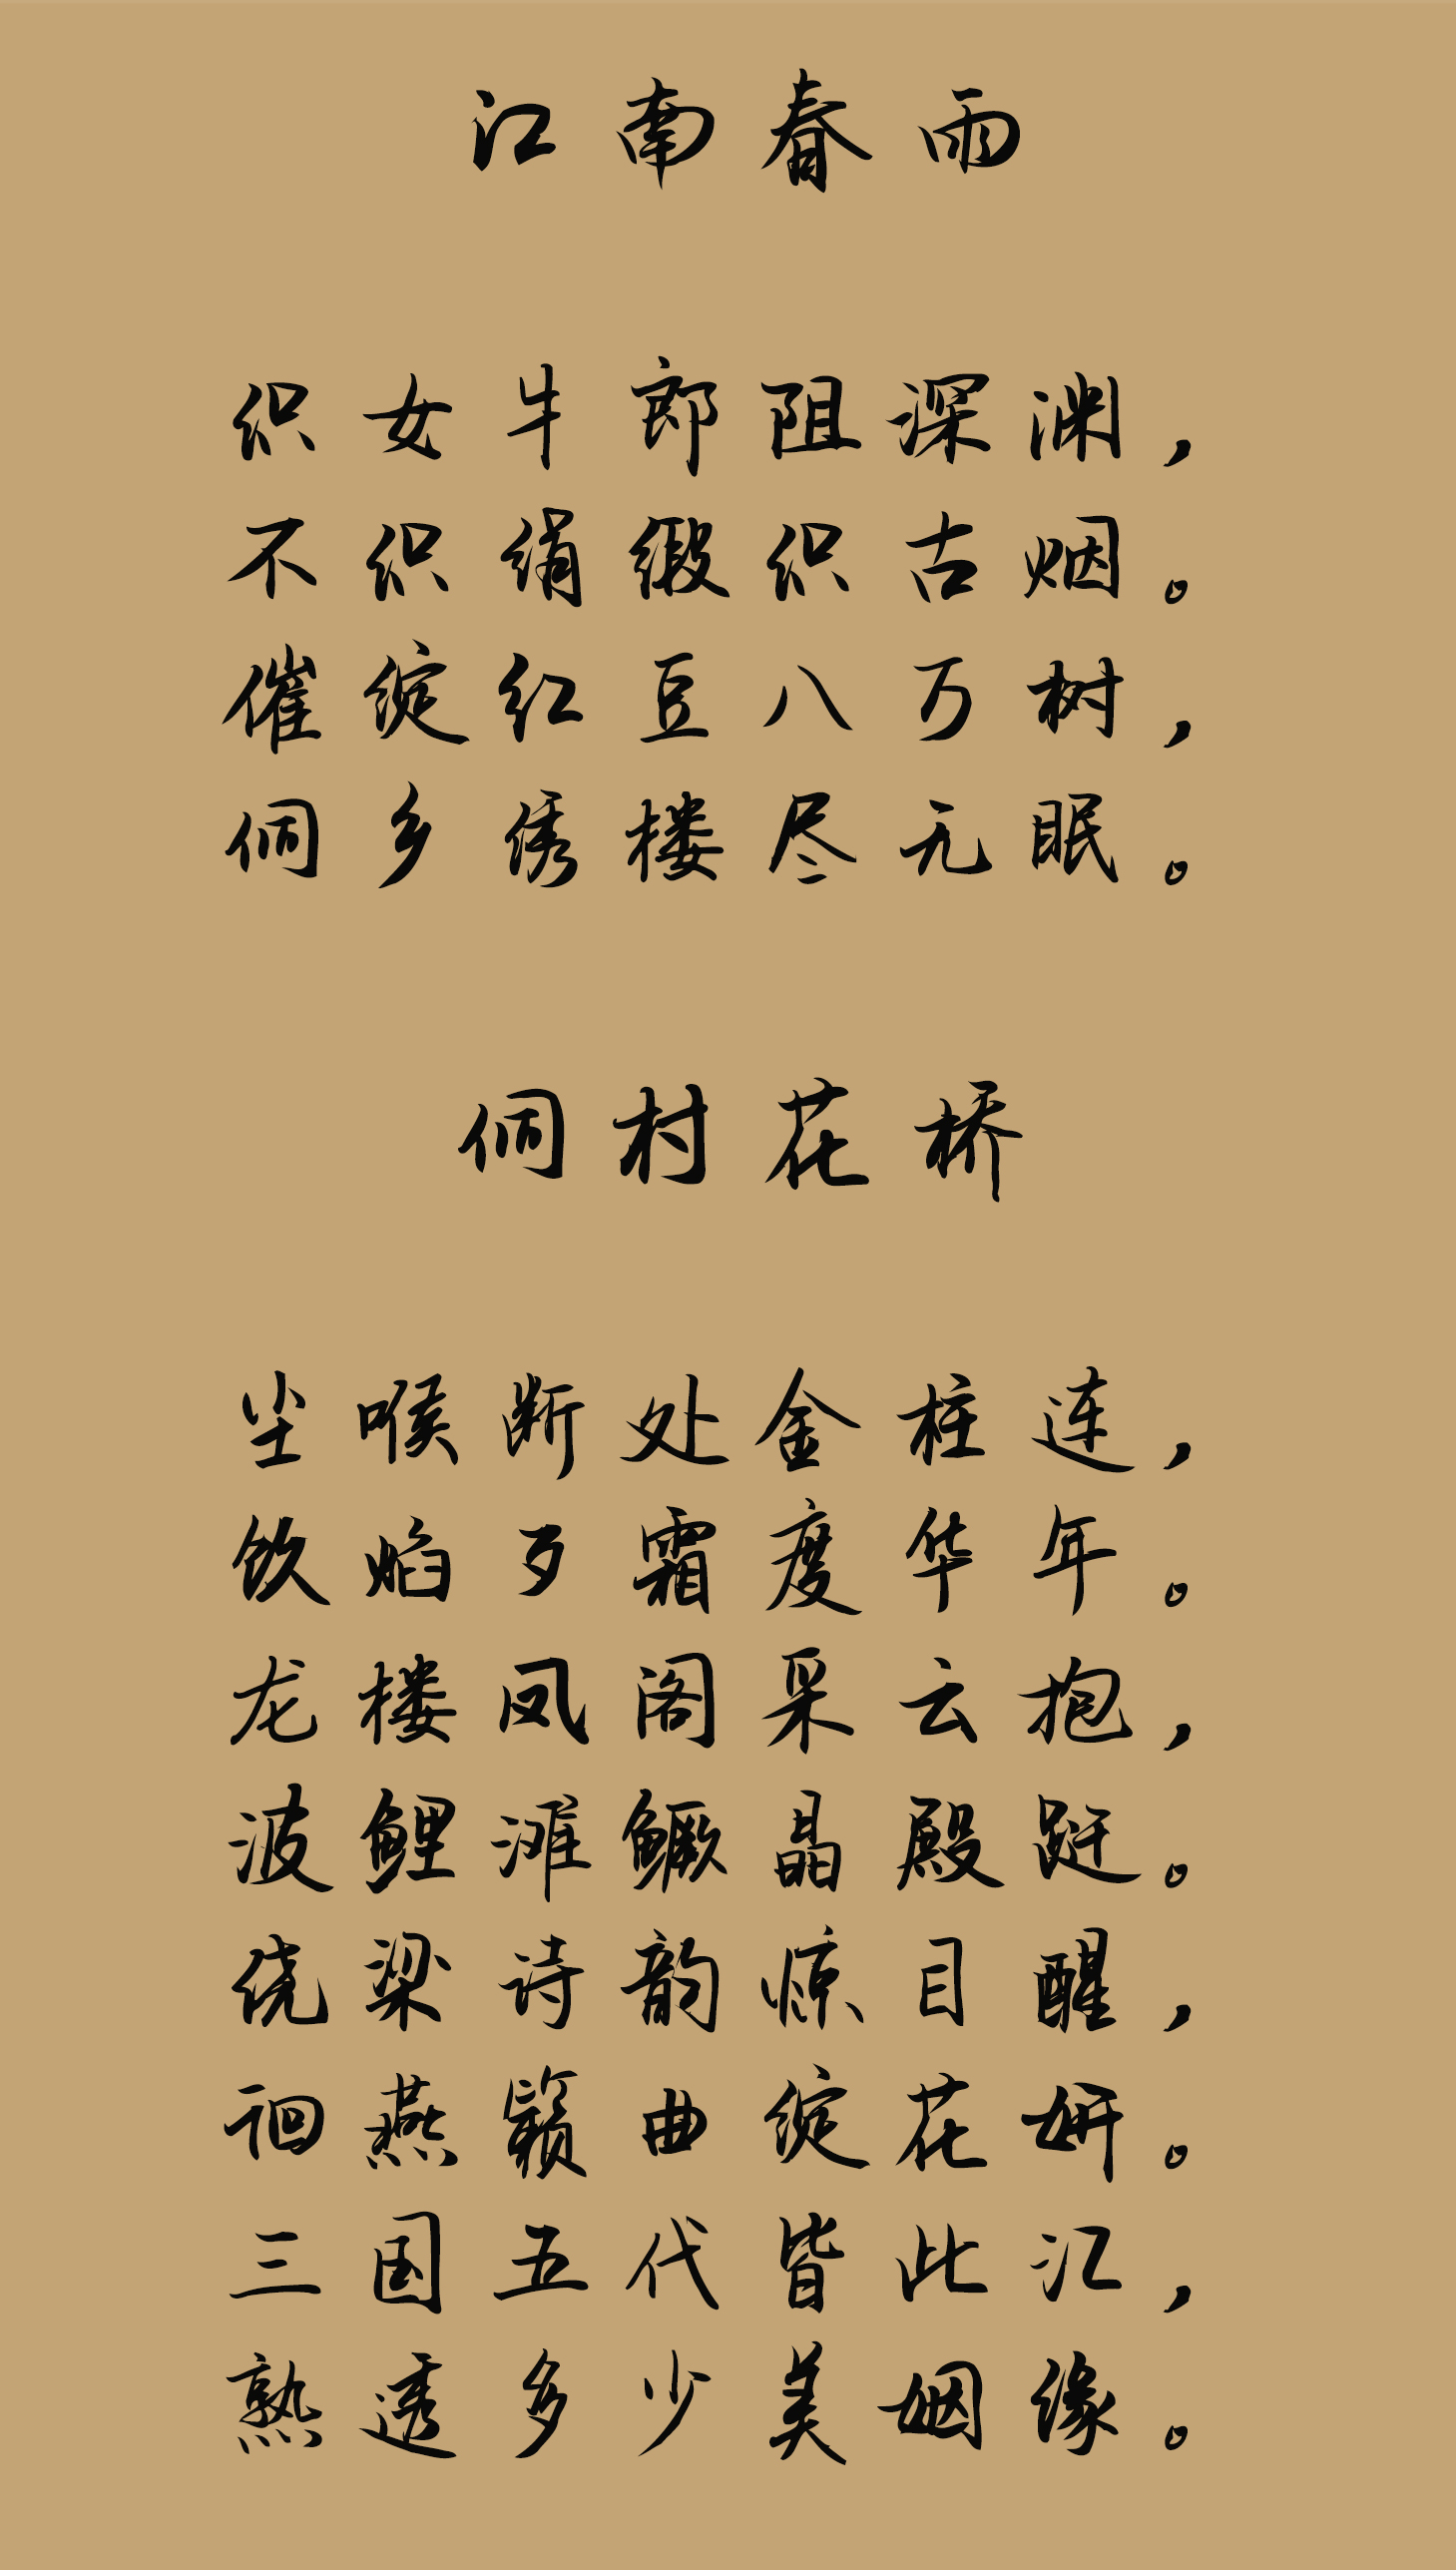 江南春雨
织女牛郎阻深渊，
不织绢缎织古烟。
催绽红豆八万树，
侗乡绣楼尽无眠。
侗村花桥
尘喉断处金柱连，
饮焰歹霜度华年。
龙楼凤阁采云抱，
波鲤滩鳜晶殿跹。
绕梁诗韵惊目醒，
徊燕籁曲绽花妍。
三国五代皆此汇，
熟透多少美姻缘。